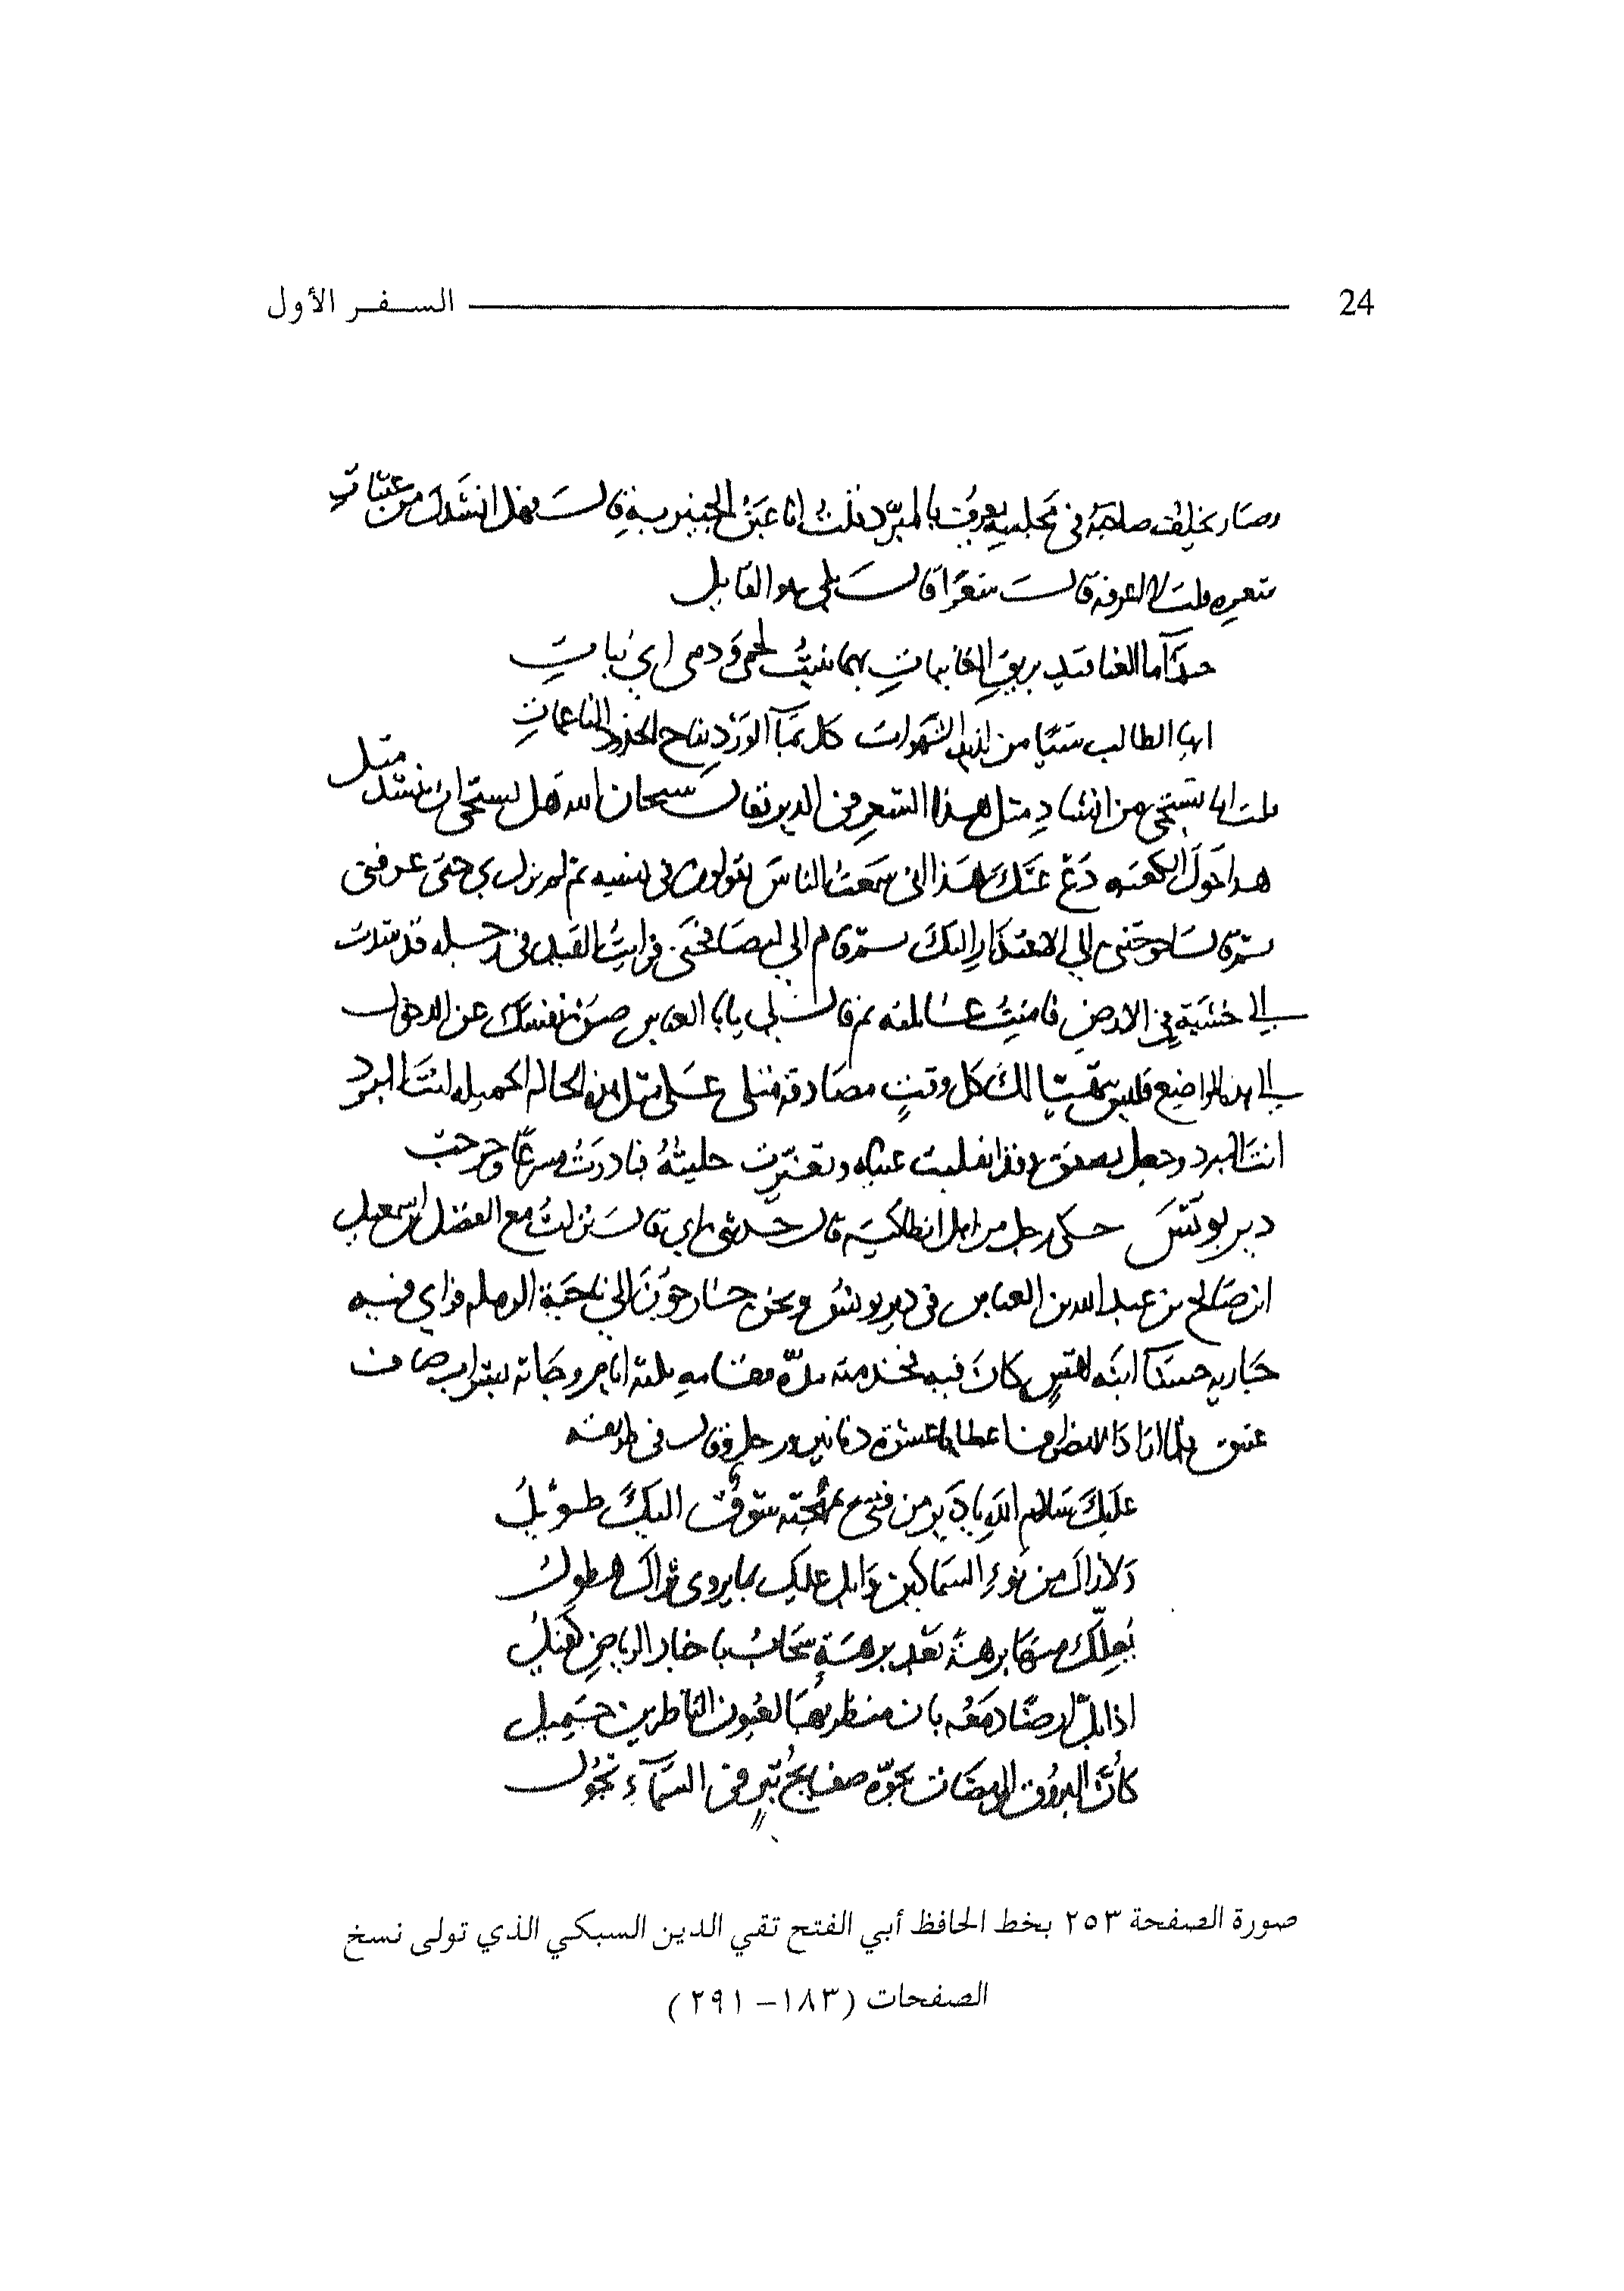 24 السفر الأول
وصار يخلف صاحبه في مجلسه يعرف بالمبرد فقلت انا عين الخبير به قال فهل انشدك من عبثات
شعره قلت لا اعرفه قال شعرًا قال بلى هو القايل
حبذا ما العناقيد بريق الغانيات بهما ينبت لحمي ودمي اي نبات
ايها الطالب شيًا من لذيذ الشهوات كل بما الورد تفاح الخدود الناعمات
قلت اما تستحي من انشاد مثل هذا الشعر في الدير فقال سبحان الله هل يستحي ان ينشد مثل
هذا حول الكعبه دع عنك هذا اني سمعت الناس يقولون في نسبه ثم لم يزل بي حتى عرفني
ثم قال احوجتني الي الاعتذار اليك ثم قام الي ليصافحني فرايت القيد في رجله قد شدت
الي خشبة في الارض فامنت غايلته ثم قال لي يابا العباس صن نفسك عن الدخول
الي هذه المواضع فليس يتهيا لك كل وقت مصادفة مثلي على مثل هذه الحاله الجميله انت المبرد
انت المبرد وجعل يصفق وقد انقلبت عيناه وتغيرت حليته فبادرت مسرعًا وخرجت
دير يونس حكى رجل من اهل انطاكيه قال حدثني ابي قال نزلت مع الفضل بن اسمعيل
ابن صالح بن عبد الله بن العباس في دير يونس ونحن خارجون الى ناحية الرمله فراي فيه
جاريه حسنآ ابنه لقس كان فيه تخدمته مدّه مقامه ثلثه ايام وجاته بشراب صاف
عتيق فلما اراد الانصراف اعطاها عشرة دنانير ورحل وقال في طريقه
عليك سلام الله يا دير من فتى بمهجته شوق اليك طويل
ولا زال من نوء السماكين وابل عليك بما يروى ثراك هطول
يعلّك منها برهة بعد برهة سحاب باخبار الرياض كفيل
اذا بلّ ارضًا دمعه بان منظر بها لعيون الناظرين جميل
كأن البروق الومضات بجوّه صفايح تبر في السمآء تجول
صورة الصفحة ٢٥٣ بخط الحافظ أبي الفتح تقي الدين السبكي الذي تولى نسخ
الصفحات (١٨٣- ٢٩١)